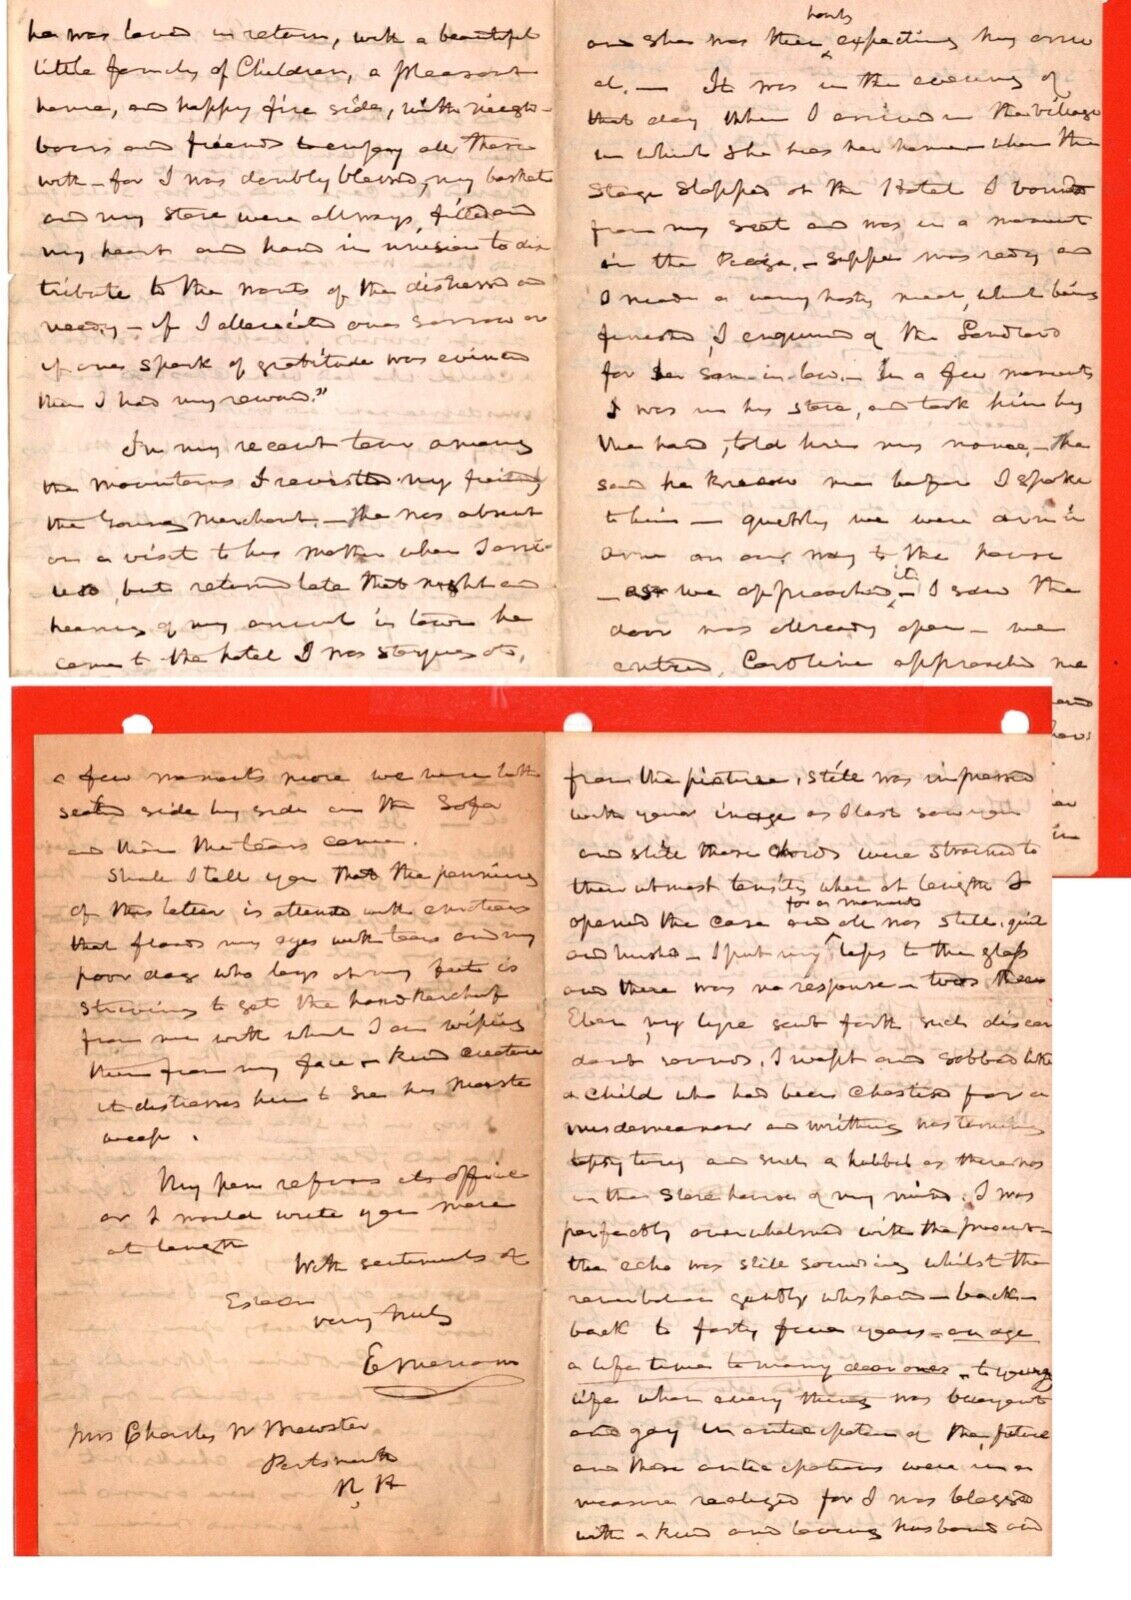 he was loved in return, with a beautiful
little family of Children, a pleasant
home, and happy fire side, with neigh-
bours and friends to enjoy all these
with - for I was doubly blessed, my basket
and my store were allways filled and
my heart and hand in unision to dis
tribute to the wants of the distressed and
needy - if I alleviated one sorrow or
if one spark of gratitude was evinced
then I had my reward."
In my recent tour among
the mountains I revisited my friend
the Young Merchant. - He was absent
on a visit to his Mother when I arri-
ved, but returned late that night and
hearing of my arrival in town he
came to the hotel I was stoping at,
and she was then hourly expecting my arriv
al. - It was in the evening of
that day when I arrived in the village
in which she has her home - when the
Stage Stopped at the Hotel I bounded
from my seat and was in a moment
in the Piazza. - Supper was ready and
I made a very hasty meal, which being
finished, I enquired of the Landlord
for her son-in-law. - In a few moments
I was in his store, and took him by
the hand, told him my name, - He
said he knew me before I spoke
to him - quickly we were arm in
arm on our way to the house
- as we approached it - I saw the
door was allready open - we
entred, Caroline approached me
a few moments more we were both
seated side by side on the Sofa
and then the tears came.
Shall I tell you that the penning
of this letter is attended with emotions
that floods my eyes with tears and my
poor dog who lays at my feet is
striving to get the handkerchief
from me with which I am wiping
them from my face - kind creature
it distresses him to see his Master
weep.
My pen refuses its office
or I would write you more
at length
With sentiments of
Esteem
very truly
E Meriam
Mrs Charles W Brewster
Portsmouth
N. H
from the picture, still was impressed
with your image as I last saw you
and still those chords were strained to
their utmost tensity when at length I
opened the case and for a moment all was still, quiet
and hushed - I put my lips to the glass
and there was no response - twas then
Eben, my lyre sent forth such discor
dant sounds, I wept and sobbed like
a child who had been chastised for a
misdemeanor and writhing was turning
topsy turvy and such a hubbub as there was
in the store house of my mind. I was
perfectly overwhelmed with the present -
the echo was still sounding whilst the
gently whispered - back -
back to forty five years - an age
a life time to many dear ones - to young
life when every thing was buoyant
and gay in anticipation of the future
and those anticipations were in a
measure realized for I was blessed
with a kind and loving husband and